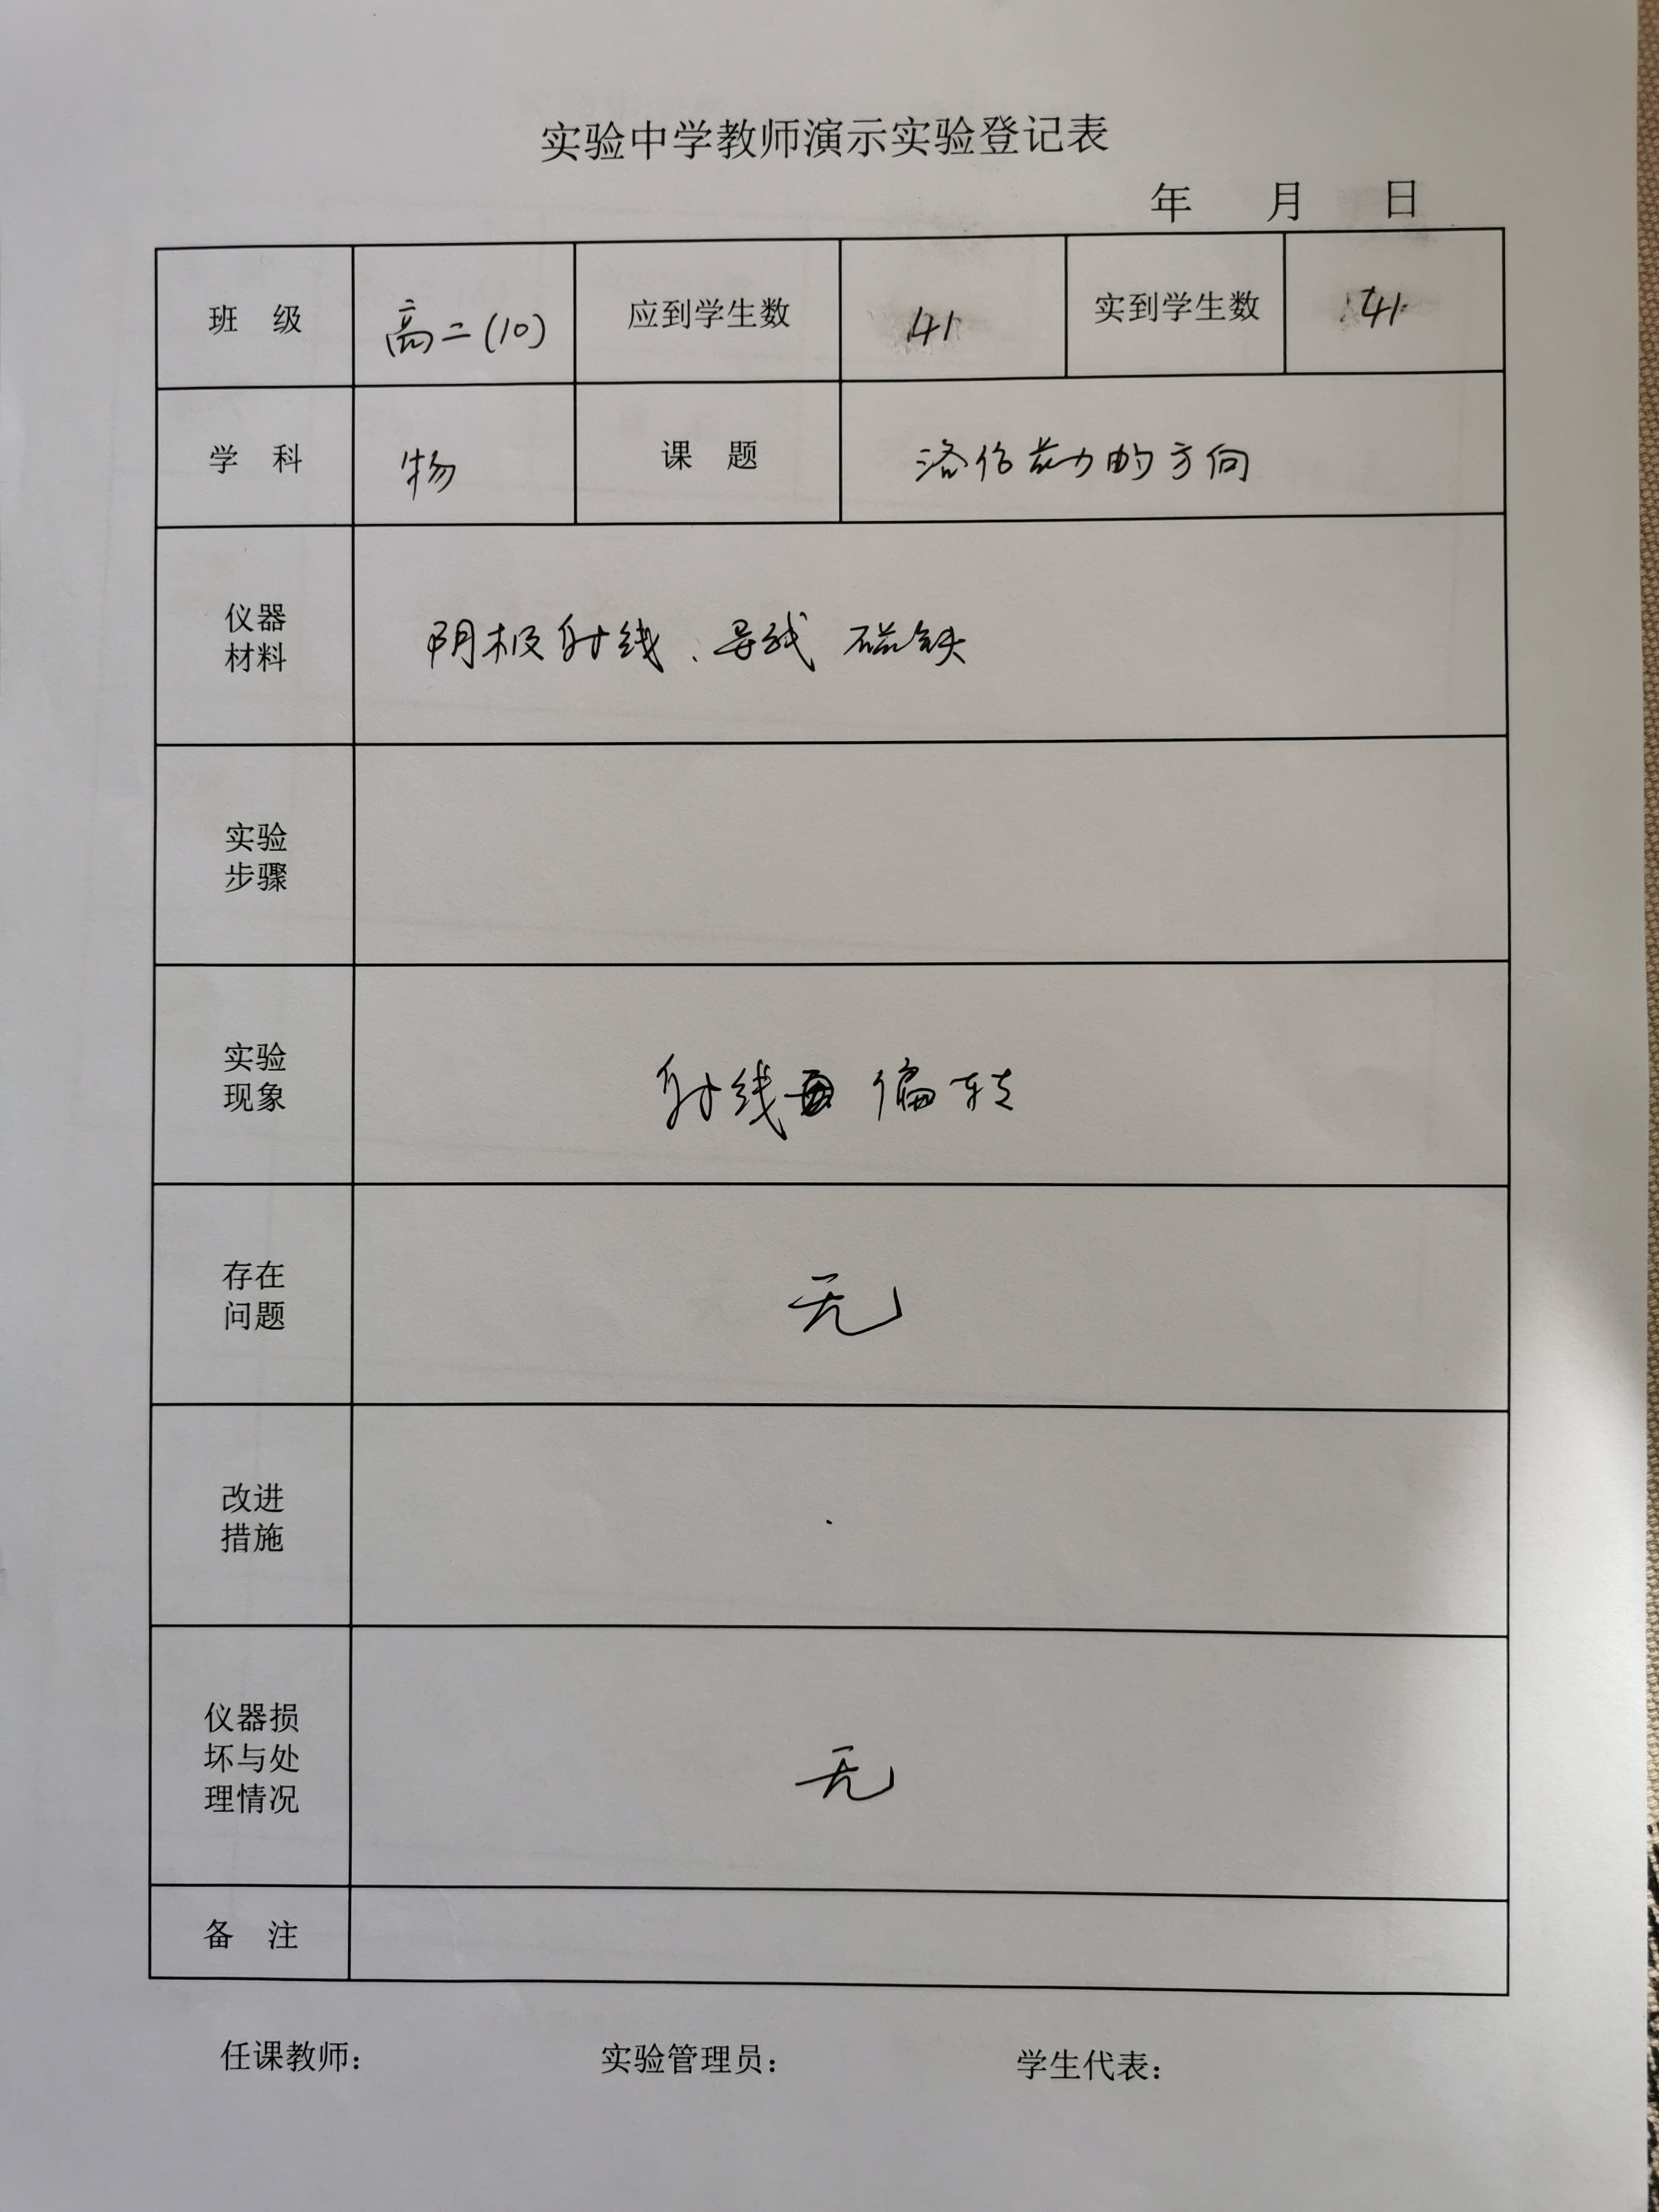 实验中学教师演示实验登记表
年 月 日
班 级 高二(10) 应到学生数 41 实到学生数 41
学 科 物 课 题 洛伦兹力的方向
仪器
材料
阴极射线、导线 磁铁
实验
步骤
实验
现象
射线 偏转
存在
问题
无
改进
措施
仪器损
坏与处
理情况
无
备 注
任课教师： 实验管理员： 学生代表：